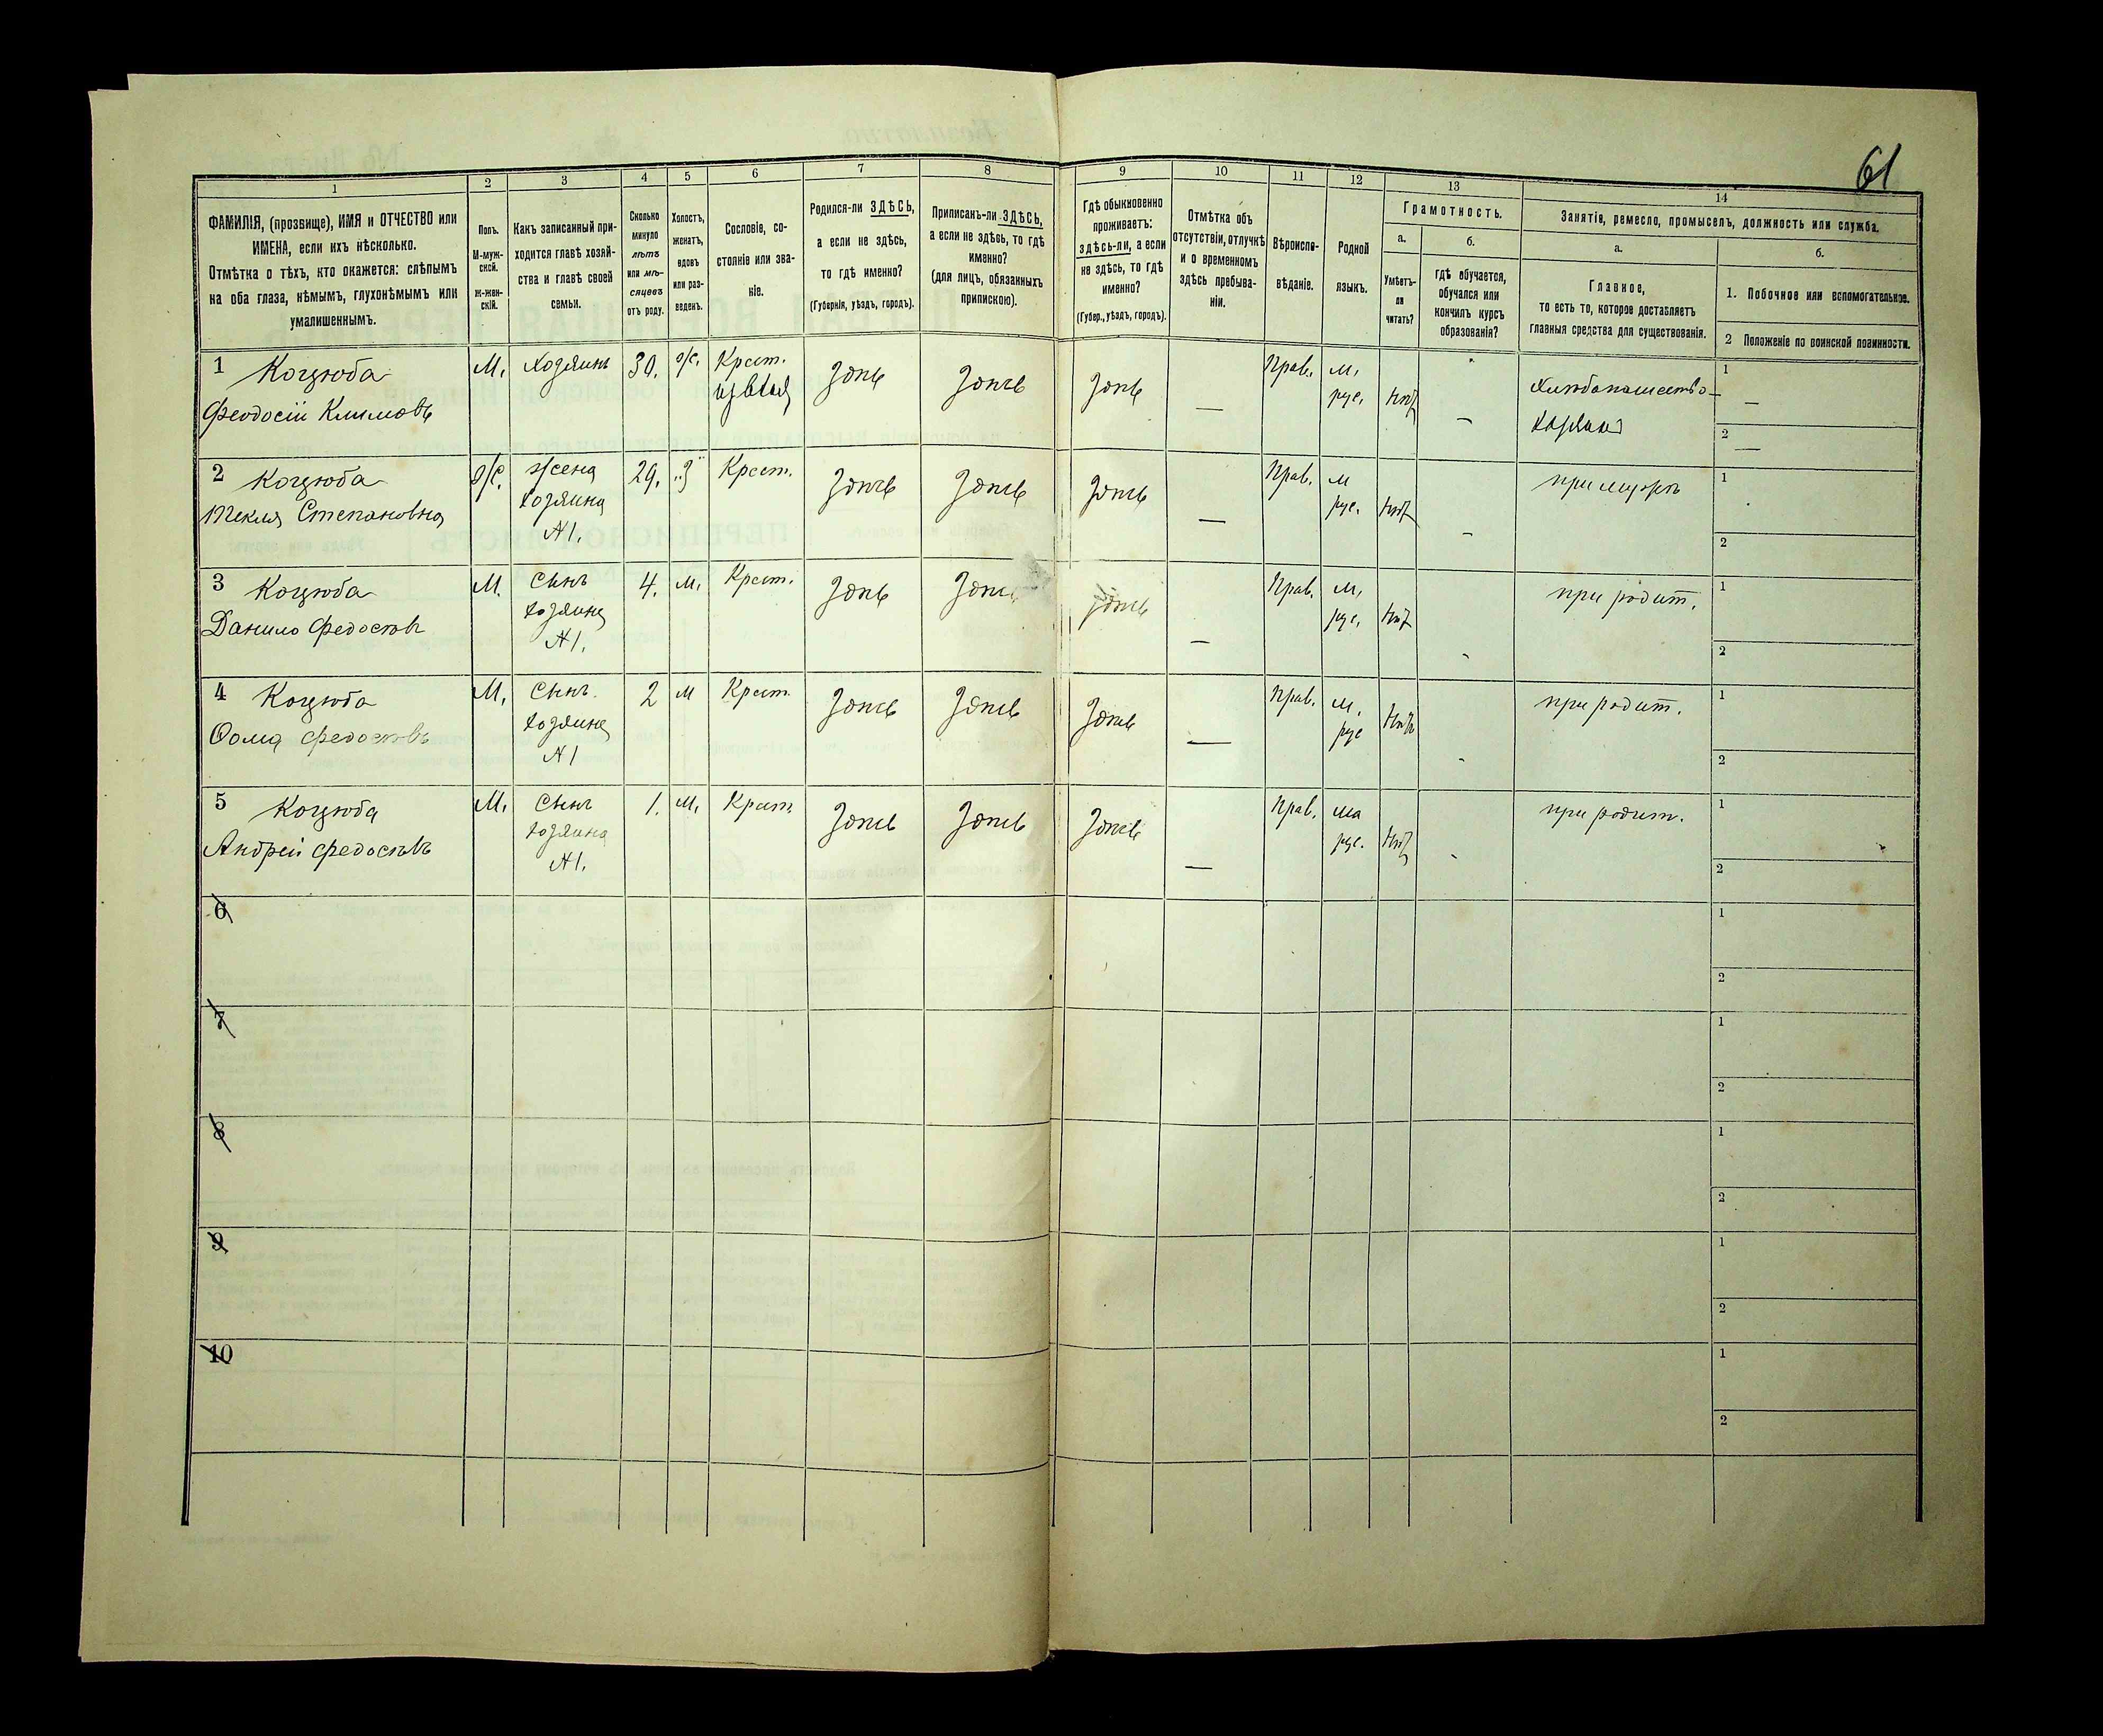 61
1 2 3 4 5 6 7 8 9 10 11 12 13 14
ФАМИЛІЯ, (прозвище), ИМЯ и ОТЧЕСТВО или
ИМЕНА, если ихъ нѣсколько.
Отмѣтка о тѣхъ, кто окажется: слѣпымъ
на оба глаза, нѣмымъ, глухонѣмымъ или
умалишеннымъ.
Полъ.
М-муж-
ской.
Ж-жен-
скій.
Какъ записанный при-
ходится главѣ хозяй-
ства и главѣ своей
семьи.
Сколько
минуло
лѣтъ
или мѣ-
сяцевъ
отъ роду.
Холостъ,
женатъ,
вдовъ
или раз-
веденъ.
Сословіе, со-
стояніе или зва-
ніе.
Родился-ли ЗДѢСЬ,
а если не здѣсь,
то гдѣ именно?
(Губернія, уѣздъ, городъ).
Приписанъ-ли ЗДѢСЬ,
а если не здѣсь, то гдѣ
именно?
(для лицъ, обязанныхъ
припискою).
Гдѣ обыкновенно
проживаетъ:
здѣсь-ли, а если
не здѣсь, то гдѣ
именно?
(Губер., уѣздъ, городъ).
Отмѣтка объ
отсутствіи, отлучкѣ
и о временномъ
здѣсь пребыва-
ніи.
Вѣроиспо-
вѣданіе.
Родной
языкъ.
Грамотность.
а.
Умѣетъ-
ли
читать?
б.
гдѣ обучается,
обучался или
кончилъ курсъ
образованія?
Занятія, ремесло, промыселъ, должность или служба.
а.
Главное,
то есть то, которое доставляетъ
главныя средства для существованія.
б.
1. Побочное или вспомогательное.
2 Положеніе по воинской повинности.
1 Коцюба М. хозяинъ 30. ж. Крест. здѣсь здѣсь здѣсь — Прав. м. нѣт — хлѣбопашество- 1 —
Феодосій Климовъ рус. хозяинъ 2 —
2 Коцюба Ж. жена 29. „З" Крест. здѣсь здѣсь здѣсь — Прав. м нѣт - при мужѣ 1
Текля Степановна хозяина рус. 2
№1.
3 Коцюба М. сынъ 4. м. Крест. здѣсь здѣсь здѣсь — Прав. м. нѣт - при родит. 1
Данило Федосѣевъ хозяина рус. 2
№1.
4 Коцюба М. сынъ 2 м Крест. здѣсь здѣсь здѣсь — Прав. м. нѣтъ - при родит. 1
Ѳома Федосѣевъ хозяина рус 2
№1
5 Коцюба М. сынъ 1. м. Крест. здѣсь здѣсь здѣсь — Прав. ма нѣт - при родит. 1
Андрей Федосѣевъ хозяина рус. 2
№1.
6 1
2
7 1
2
8 1
2
9 1
2
10 1
2